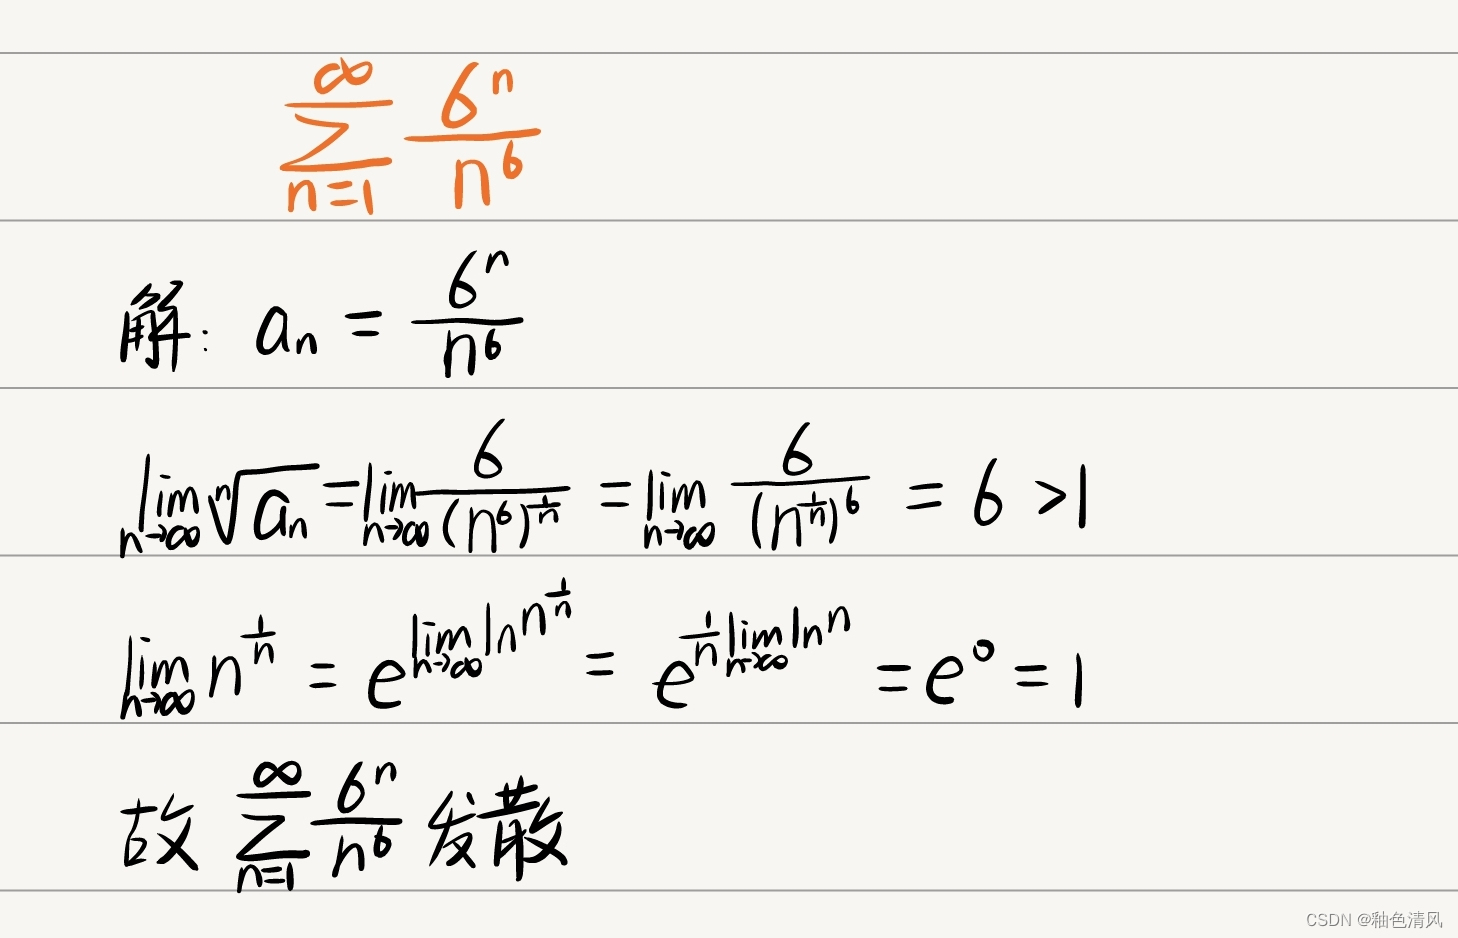 ∞∑n=1 6^n/n^6
解: a_n = 6^n/n^6
lim n→∞ ⁿ√a_n = lim n→∞ 6/(n^6)^(1/n) = lim n→∞ 6/(n^(1/n))^6 = 6 >1
lim n→∞ n^(1/n) = e^(lim n→∞ ln n^(1/n)) = e^(1/n lim n→∞ ln n) = e^0 = 1
故 ∞∑n=1 6^n/n^6 发散
CSDN @釉色清风